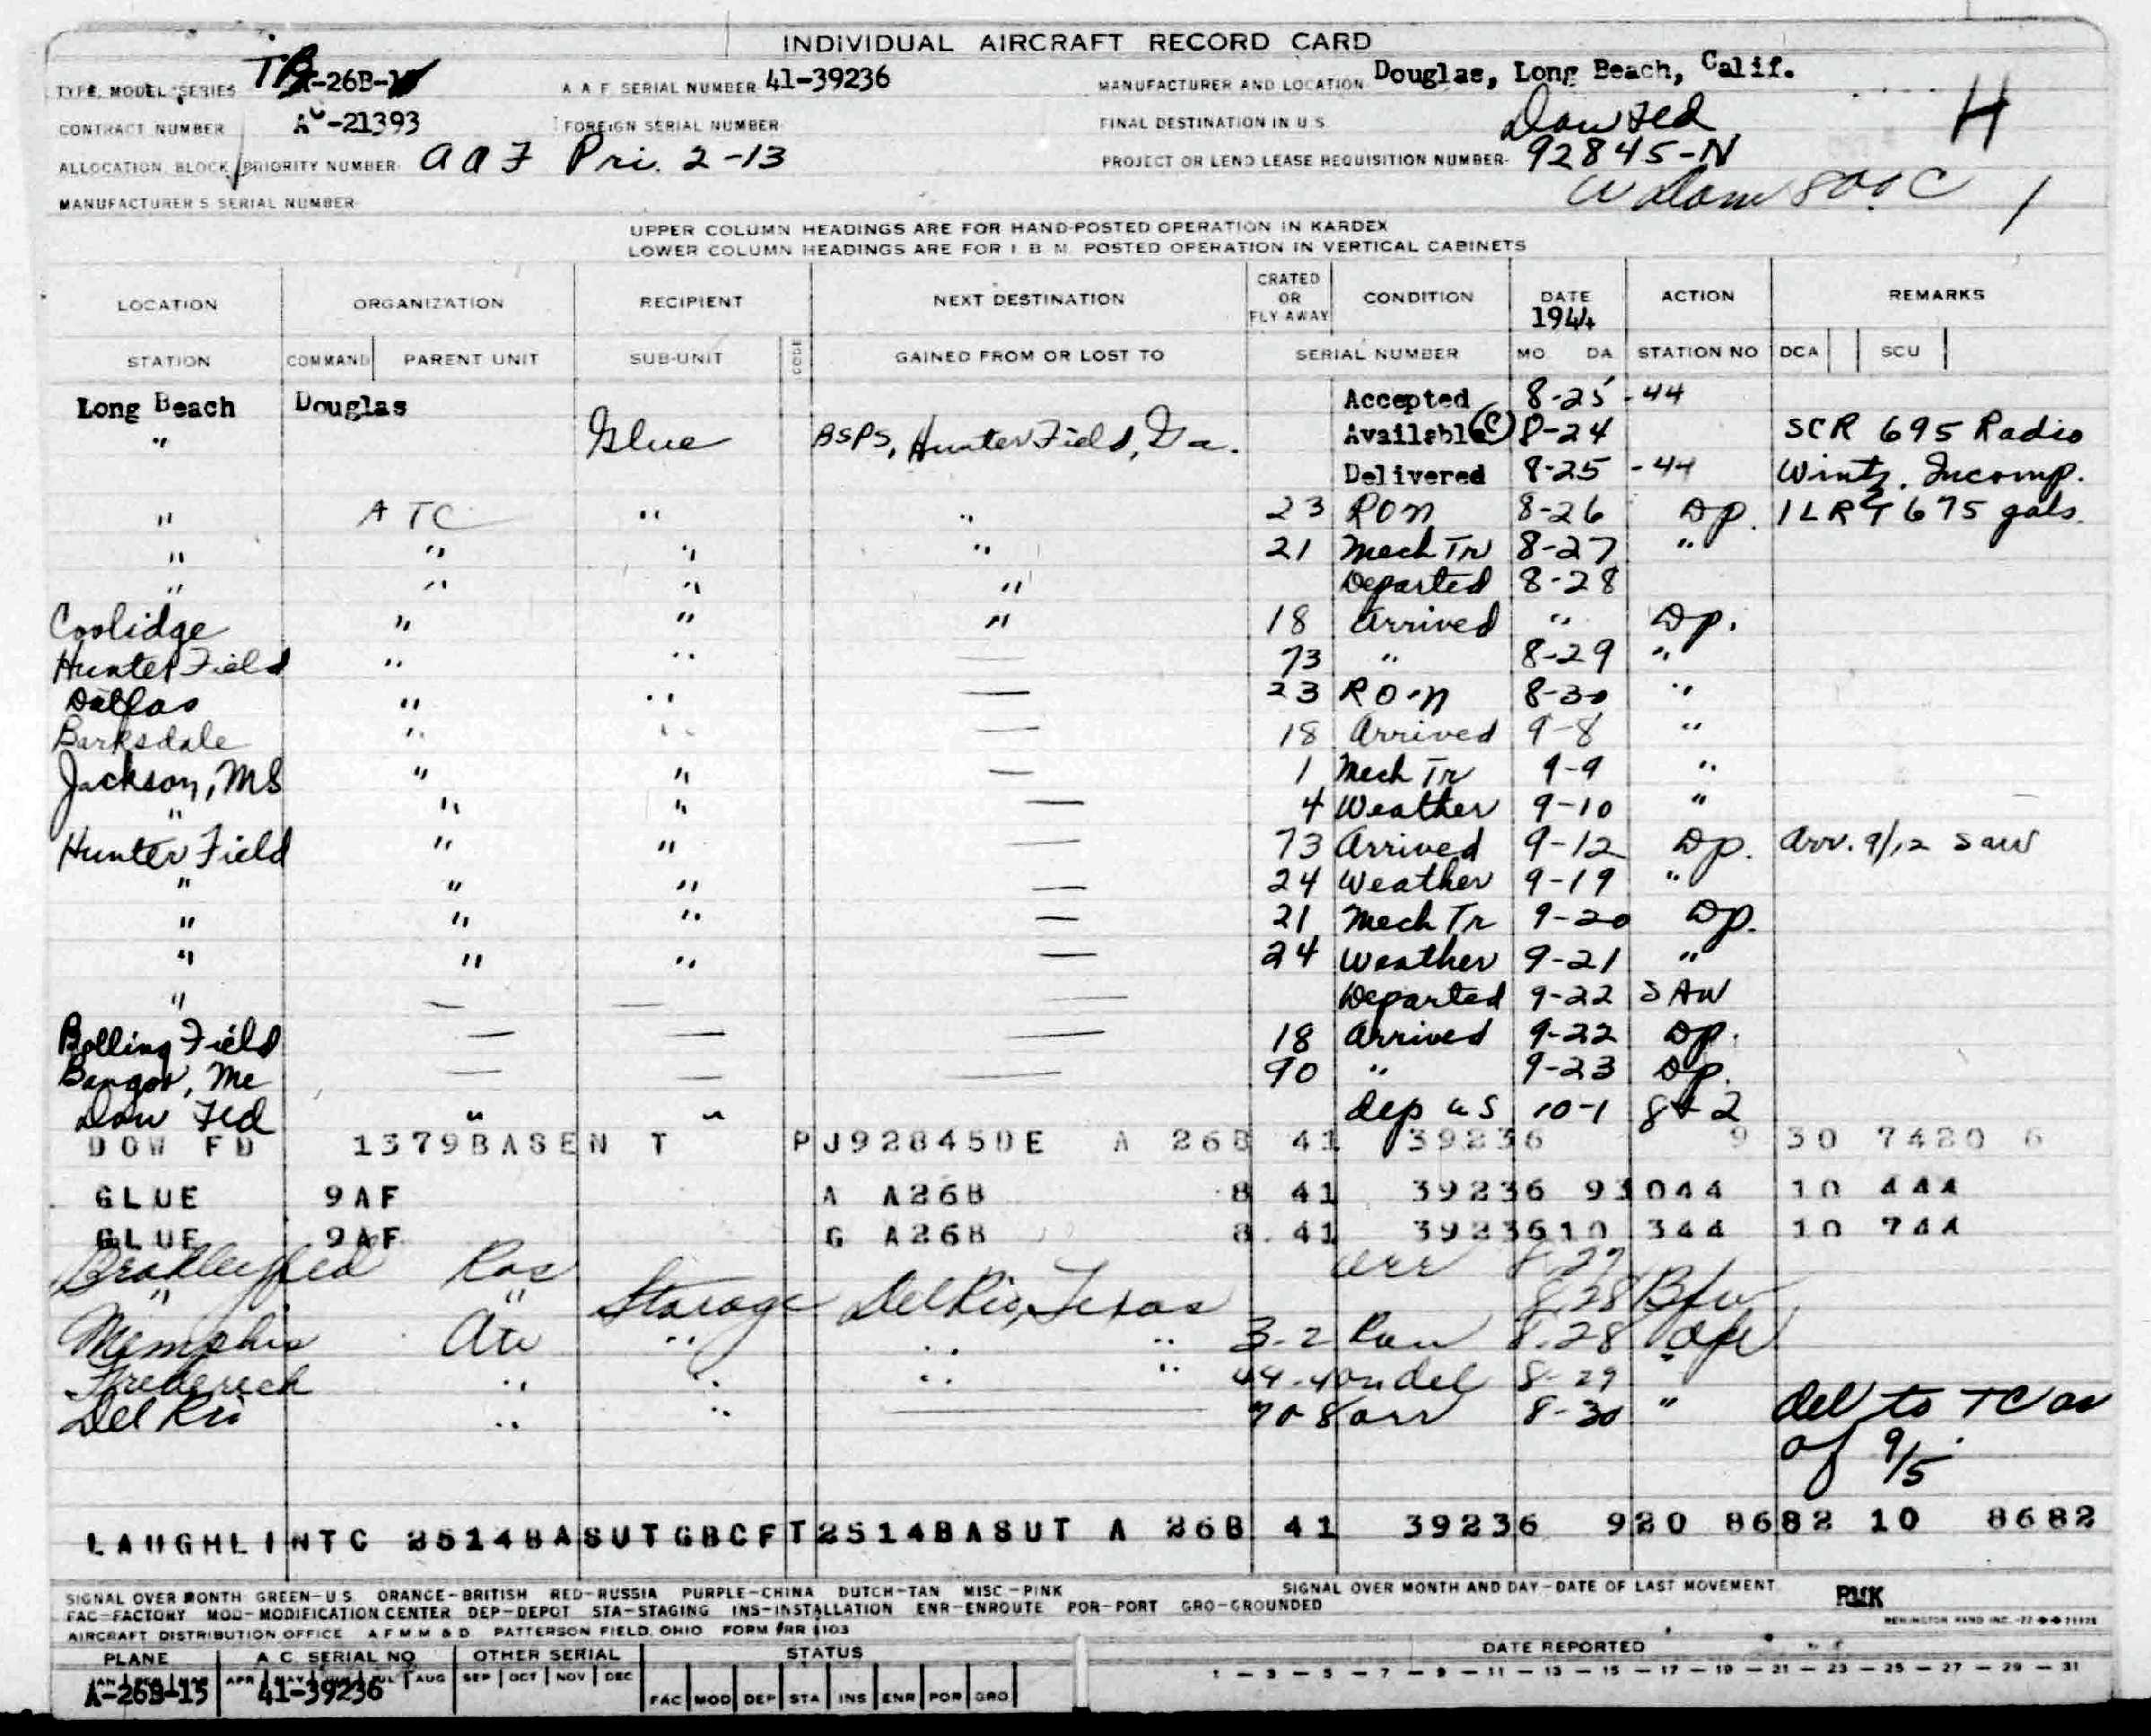 INDIVIDUAL AIRCRAFT RECORD CARD
TYPE, MODEL, SERIES -26B- A A F SERIAL NUMBER 41-39236 MANUFACTURER AND LOCATION Douglas, Long Beach, Calif.
CONTRACT NUMBER AC-21393 FOREIGN SERIAL NUMBER FINAL DESTINATION IN U.S. Dow Fld H
ALLOCATION, BLOCK, PRIORITY NUMBER AAF Pri. 2-13 PROJECT OR LEND LEASE REQUISITION NUMBER 92845-N
MANUFACTURERS SERIAL NUMBER
UPPER COLUMN HEADINGS ARE FOR HAND-POSTED OPERATION IN KARDEX
LOWER COLUMN HEADINGS ARE FOR I.B.M. POSTED OPERATION IN VERTICAL CABINETS
LOCATION ORGANIZATION RECIPIENT NEXT DESTINATION CRATED OR FLY AWAY CONDITION DATE 1944 ACTION REMARKS
STATION COMMAND PARENT UNIT SUB-UNIT CODE GAINED FROM OR LOST TO SERIAL NUMBER MO. DA STATION NO DCA SCU
Long Beach Douglas Accepted 8-25-44
" Glue BSPS, Hunter Field, Ga. Available (C) 8-24 SCR 695 Radio
Delivered 8-25-44 Wintz. Incomp.
" ATC " " 23 RON 8-26 Dp. 1 LRT 675 gals.
" " " " 21 Mech Tr 8-27 "
" " " " Departed 8-28
Coolidge " " " 18 Arrived " Dp.
Hunter Field " " — 73 " 8-29 "
Dallas " " — 23 RON 8-30 "
Barksdale " " — 18 Arrived 9-8 "
Jackson, MS " " — 1 Mech Tr 9-9 "
" " " — 4 Weather 9-10 "
Hunter Field " " — 73 Arrived 9-12 Dp. Arr. 9/12 SAW
" " " — 24 Weather 9-19 "
" " " — 21 Mech Tr 9-20 Dp.
" " " — 24 Weather 9-21 "
" — — — Departed 9-22 SAW
Bolling Field — — — 18 Arrived 9-22 Dp.
Bangor, Me — — — 90 " 9-23 Dp.
Dow Fld " " dep US 10-1
DOW FD 1379BASEN T PJ92845DE A 26B 41 39236 9 30 7420 6
GLUE 9AF A A26B 8 41 39236 93044 10 444
GLUE 9AF G A26B 8 41 3923610 344 10 744
arr 8-27
" " Storage Del Rio, Texas 8-28
Memphis " " " 3-2 Ron 8-28
Frederick " " " " 8-29
Del Rio " " — 70-8 arr 8-30 " del to TC as
of 9/5
LAUGHLINTC 2514BASUTGBCFT2514BASUT A 26B 41 39236 920 8682 10 8682
SIGNAL OVER MONTH GREEN-U S. ORANGE-BRITISH RED-RUSSIA PURPLE-CHINA DUTCH-TAN MISC.-PINK SIGNAL OVER MONTH AND DAY-DATE OF LAST MOVEMENT RMK
FAC-FACTORY MOD-MODIFICATION CENTER DEP-DEPOT STA-STAGING INS-INSTALLATION ENR-ENROUTE POR-PORT GRO-GROUNDED
AIRCRAFT DISTRIBUTION OFFICE A F M M & D PATTERSON FIELD, OHIO
PLANE A C. SERIAL NO OTHER SERIAL STATUS DATE REPORTED
APR AUG SEP OCT NOV DEC
A-26B-15 41-39236 FAC MOD DEP STA INS ENR POR GRO 1 — 3 — 5 — 7 — 9 — 11 — 13 — 15 — 17 — 19 — 21 — 23 — 25 — 27 — 29 — 31